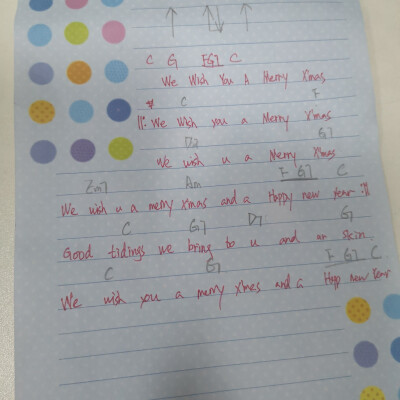 C G G7 C
We Wish You A Merry Xmas
C F
||: We Wish you a Merry Xmas
D7 G7
We wish u a Merry Xmas
Em7 Am F G7 C
We wish u a merry xmas and a Happy new Year :||
C G7 D7 G
Good tidings we bring to u and ur skin
C G7 F G7 C
We wish you a merry xmes and a Happ new Year